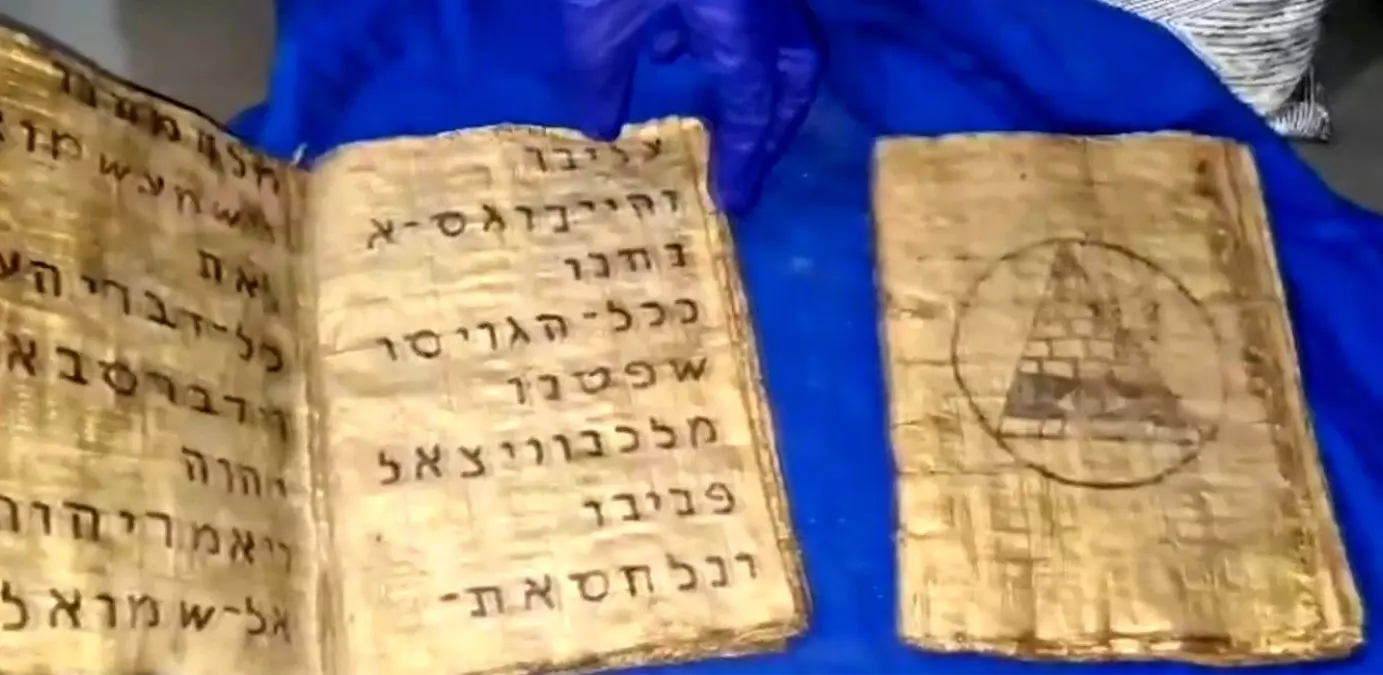 עליבו
והייבוגס-א
נחנו
ככל-הגויסו
שפטנו
מלכנווי צאל
פביבו
ונלחסאת-
ישמעשמוא
את
כל-דבריהע
וידברסבא
יהוה
ויאמריהוה
אל-שמואל